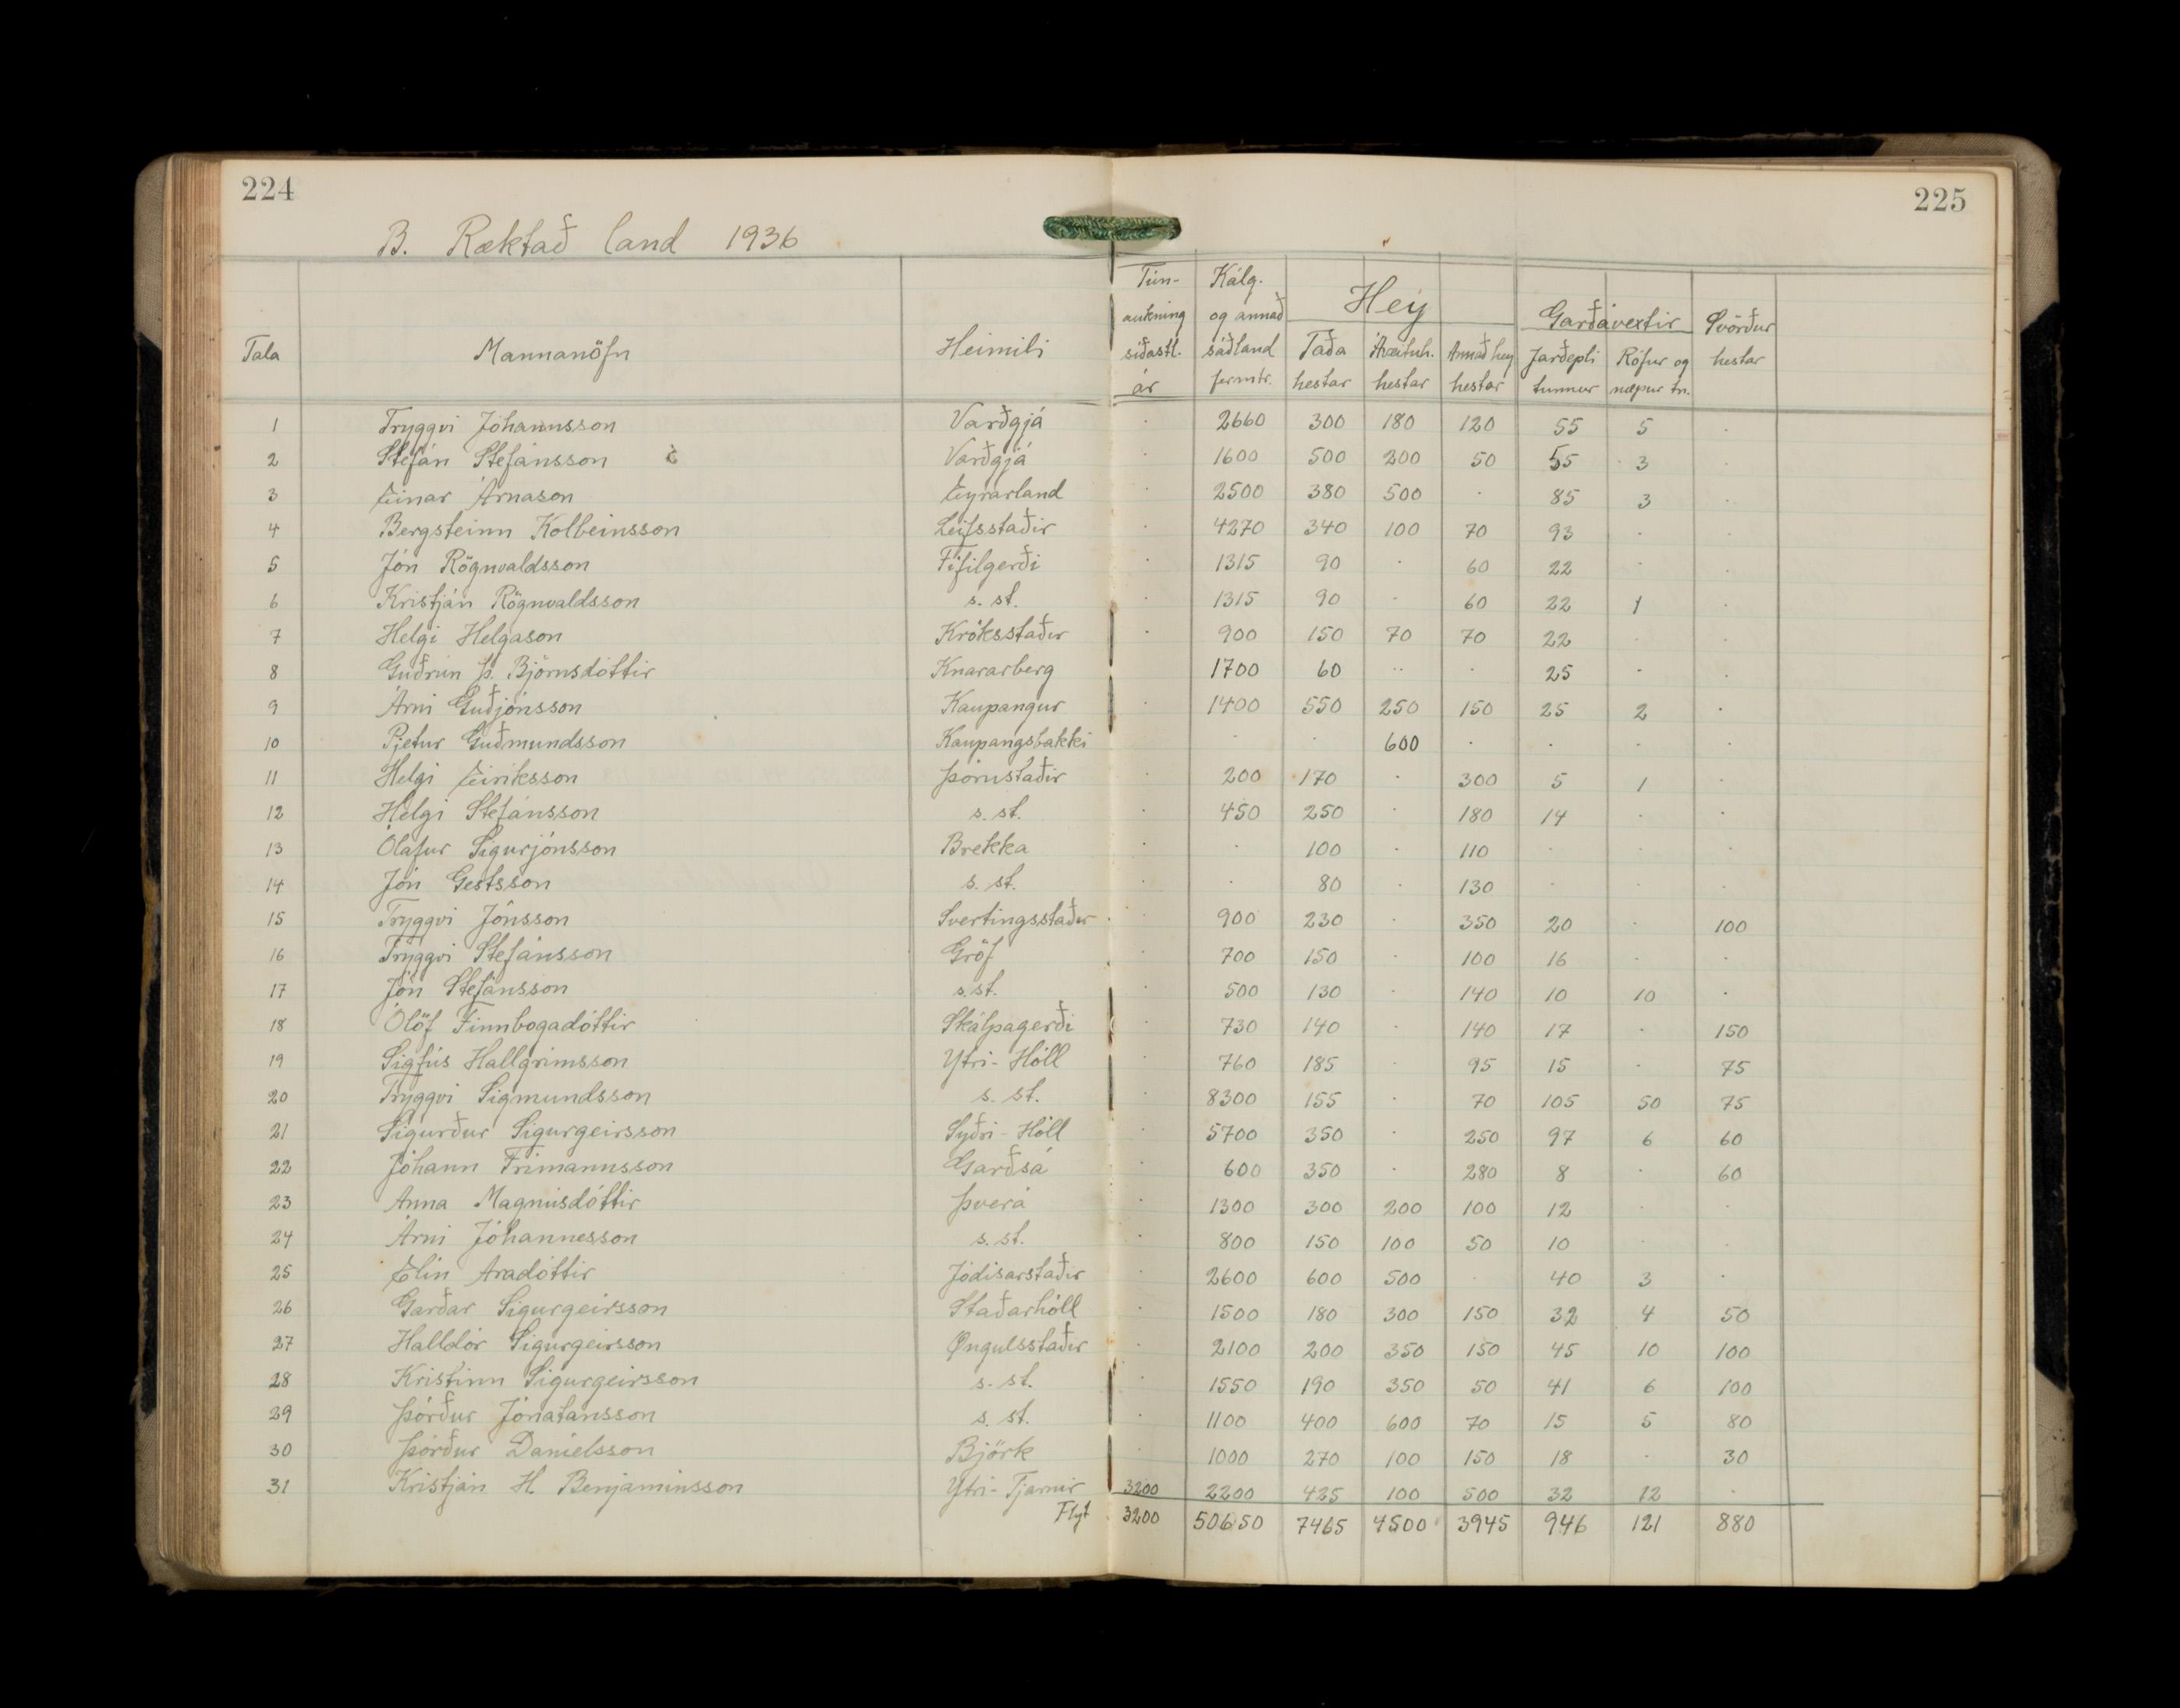 224
225
B. Ræktað land 1936
Tala Mannanöfn Heimili Tún-aukning síðastl. ár Kálg. og annað sáðland fermtr. Hey Taða hestar Áveituh. hestar Annað hey hestar Garðávextir Jarðepli tunnur Rófur og næpur tn. Svörður hestar
1 Tryggvi Jóhannsson Varðgjá · 2660 300 180 120 55 5 ·
2 Stefán Stefánsson Varðgjá · 1600 500 200 50 55 3 ·
3 Einar Árnason Eyrarland · 2500 380 500 · 85 3 ·
4 Bergsteinn Kolbeinsson Leifsstaðir · 4270 340 100 70 93 · ·
5 Jón Rögnvaldsson Fífilgerði · 1315 90 · 60 22 · ·
6 Kristján Rögnvaldsson s. st. · 1315 90 · 60 22 1 ·
7 Helgi Helgason Króksstaðir · 900 150 70 70 22 · ·
8 Guðrún Þ. Björnsdóttir Knararberg · 1700 60 ·· · 25 · ·
9 Árni Guðjónsson Kaupangur · 1400 550 250 150 25 2 ·
10 Pjetur Guðmundsson Kaupangsbakki · · · 600 · · · ·
11 Helgi Eiríksson Þórustaðir · 200 170 · 300 5 1 ·
12 Helgi Stefánsson s. st. · 450 250 · 180 14 · ·
13 Ólafur Sigurjónsson Brekka · · 100 · 110 · · ·
14 Jón Gestsson s. st. · · 80 · 130 · · ·
15 Tryggvi Jónsson Svertingsstaðir · 900 230 · 350 20 · 100
16 Tryggvi Stefánsson Gröf · 700 150 · 100 16 · ·
17 Jón Stefánsson s. st. · 500 130 · 140 10 10 ·
18 Ólöf Finnbogadóttir Skálpagerði · 730 140 · 140 17 · 150
19 Sigfús Hallgrímsson Ytri-Hóll · 760 185 · 95 15 · 75
20 Tryggvi Sigmundsson s. st. · 8300 155 · 70 105 50 75
21 Sigurður Sigurgeirsson Syðri-Hóll · 5700 350 · 250 97 6 60
22 Jóhann Frímannsson Garðsá · 600 350 · 280 8 · 60
23 Anna Magnúsdóttir Þverá · 1300 300 200 100 12 · ·
24 Árni Jóhannesson s. st. · 800 150 100 50 10 · ·
25 Elín Aradóttir Jódísarstaðir · 2600 600 500 · 40 3 ·
26 Garðar Sigurgeirsson Staðarhóll · 1500 180 300 150 32 4 50
27 Halldór Sigurgeirsson Öngulsstaðir · 2100 200 350 150 45 10 100
28 Kristinn Sigurgeirsson s. st. · 1550 190 350 50 41 6 100
29 Þórður Jónatansson s. st. · 1100 400 600 70 15 5 80
30 Þórður Daníelsson Björk · 1000 270 100 150 18 · 30
31 Kristján H. Benjamínsson Ytri-Tjarnir 3200 2200 425 100 500 32 12 ·
Flyt 3200 50650 7465 4500 3945 946 121 880